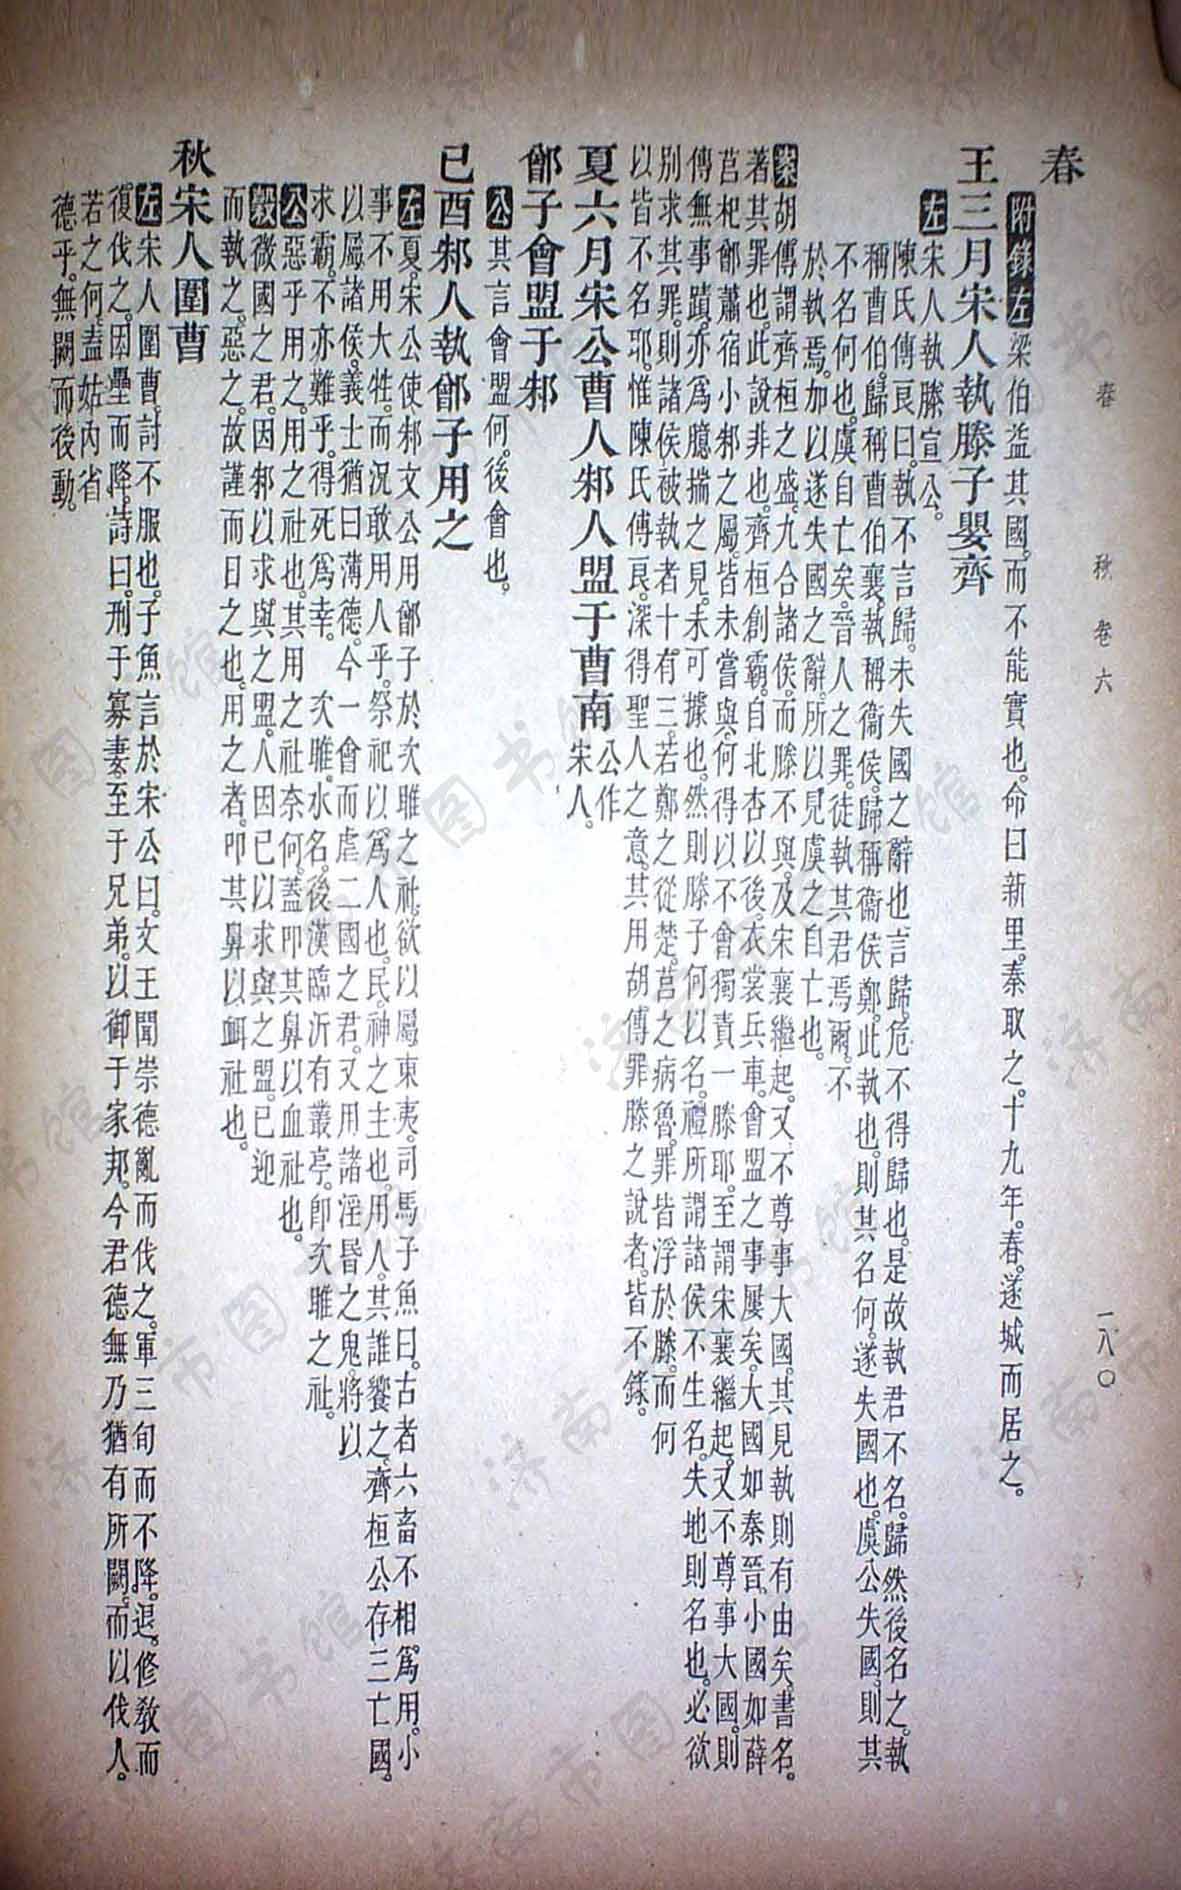 春 秋 卷六 一八〇
春
附錄左梁伯益其國。而不能實也。命曰新里。秦取之。十九年。春。遂城而居之。
王三月宋人執滕子嬰齊
左宋人執滕宣公。
陳氏傅良曰。執不言歸。未失國之辭也。言歸。危不得歸也。是故執君不名。歸然後名之。執
稱曹伯。歸稱曹伯襄。執稱衞侯。歸稱衞侯鄭。此執也。則其名何。遂失國也。虞公失國。則其
不名何也。虞自亡矣。晉人之罪。徒執其君焉爾。不
於執焉。加以遂失國之辭。所以見虞之自亡也。
案胡傳謂齊桓之盛。九合諸侯。而滕不與。及宋襄繼起。又不尊事大國。其見執則有由矣。書名。
著其罪也。此說非也。齊桓創霸。自北杏以後。衣裳兵車。會盟之事屢矣。大國如秦晉。小國如薛
莒杞鄫蕭宿小邾之屬。皆未嘗與。何得以不會獨責一滕耶。至謂宋襄繼起。又不尊事大國。則
傳無事蹟。亦爲臆揣之見。未可據也。然則滕子何以名。禮所謂諸侯不生名。失地則名也。必欲
別求其罪。則諸侯被執者十有三。若鄭之從楚。莒之病魯。罪皆浮於滕。而何
以皆不名耶。惟陳氏傅良。深得聖人之意。其用胡傳罪滕之說者。皆不錄。
夏六月宋公曹人邾人盟于曹南公作宋人。
鄫子會盟于邾
公其言會盟何。後會也。
己酉邾人執鄫子用之
左夏。宋公使邾文公用鄫子於次睢之社。欲以屬東夷。司馬子魚曰。古者六畜不相爲用。小
事不用大牲。而況敢用人乎。祭祀以爲人也。民。神之主也。用人。其誰饗之。齊桓公存三亡國。
以屬諸侯。義士猶曰薄德。今一會而虐二國之君。又用諸淫昏之鬼。將以
求霸。不亦難乎。得死爲幸。次睢。水名。後漢臨沂有叢亭。卽次睢之社。
公惡乎用之。用之社也。其用之社奈何。蓋叩其鼻以血社也。
穀微國之君。因邾以求與之盟。人因己以求與之盟。己迎
而執之。惡之。故謹而日之也。用之者。叩其鼻以衈社也。
秋宋人圍曹
左宋人圍曹。討不服也。子魚言於宋公曰。文王聞崇德亂而伐之。軍三旬而不降。退。修敎而
復伐之。因壘而降。詩曰。刑于寡妻。至于兄弟。以御于家邦。今君德無乃猶有所闕。而以伐人。
若之何。盍姑內省
德乎。無闕而後動。